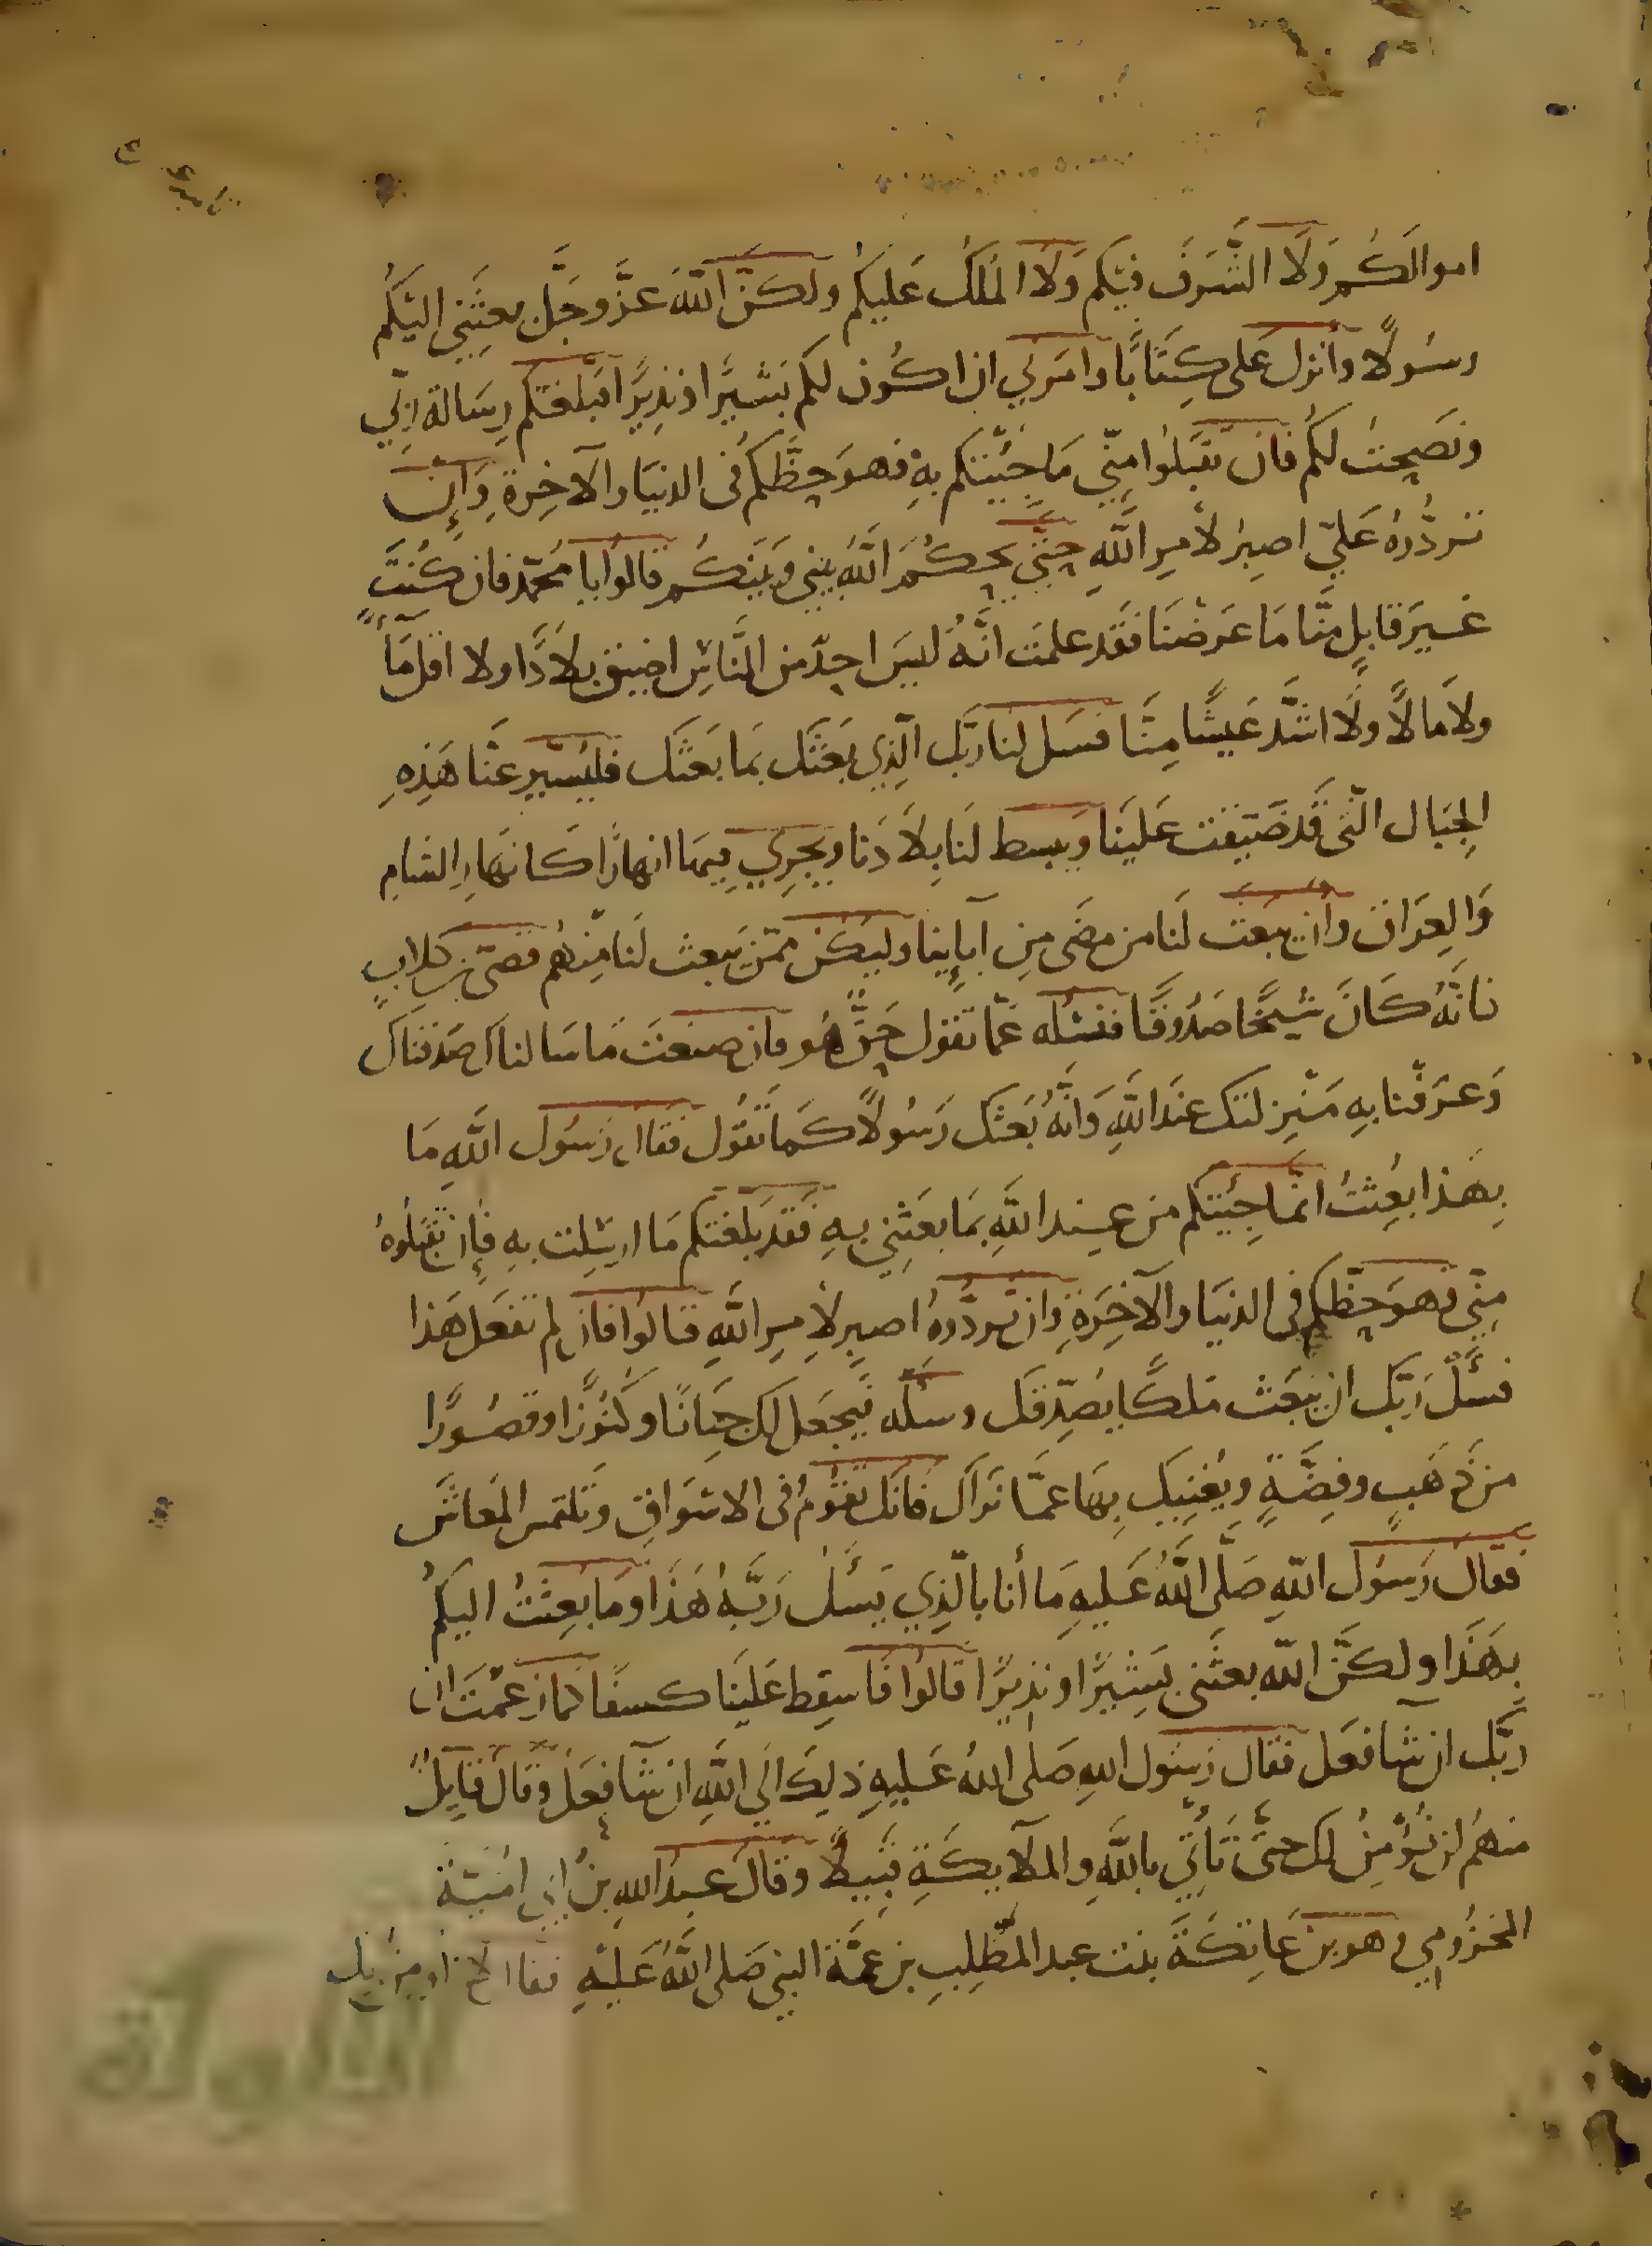 اموالكُم وَلَا الشَّرَفَ فيْكم وَلَا المَلكَ عَليكُم ولكنَّ اللَّهَ عزَّ وجَلَّ بعثَنِي اليْكُم
رسُولًا وأنزل عَلى كِتَابًا وأمرني ان اكُون لكم بَشيرًا ونَذِيرًا فبلغتكم رِسَالة ربي
ونَصَحتُ لكُم فان تقبَلوا مِنّي مَا جِئتكم بهِ فهوَ حظَّكم في الدنيَا والآخِرةِ وَإِن
تَردُّوهُ عَليّ اصبِر لأمرِ اللَّهِ حتَّى يحكُمَ اللَّهُ بيني وبَينكُم قالوا يا مُحمّد فان كُنتَ
غَيرَ قابِلٍ منَّا مَا عَرضنَا فقَد علمتَ انَّهُ ليسَ احدٌ من النَّاسِ اضيق بلَادًا ولا اقل مَآءً
ولَا مَالًا ولَا اشَّد عَيشًا مِنَّا فسَل لنا ربَّك الَّذِي بَعَثَك بمَا بَعَثَك فليُسَيِّر عَنَّا هَذِهِ
الجِبَال الَّتي قَد ضَيقت عَلينا ويبسط لَنا بِلَادَنا ويجرِي فِيهَا انهارًا كَانهَارِ الشامِ
وَالعِرَاقِ وان يبعث لَنا من مضَى مِن آبآئِنا وليَكن ممّن يَبعث لَنا مِنهُم قصَيّ بن كلابٍ
فانَّهُ كَانَ شيخًا صَدُوقًا فنسْئله عمّا تقول حَقٌّ هُو فان صنعتَ مَا سَالناك صَدقناك
وَعرَفنا بهِ مَنزِلتك عندَ اللَّهِ وَانَّهُ بَعثك رَسُولًا كَما تَقُول فقال رَسُول اللَّهِ مَا
بِهَذا بُعِثتُ انمّا جِئتكم من عِند اللَّهِ بمَا بعَثنِي بهِ فَقد بَلغتكم مَا ارسِلت بهِ فإن تقبَلُوهُ
مِنّي فهوَ حظَّكم في الدنيَا والآخِرَةِ وان تَردُّوهُ اصبر لأمرِ اللَّهِ قالوا فان لم تفعَل هَذا
فسْئَلْ رَبّك ان يبعَث مَلكًا يصَدِّقك وسئله فيجعَل لك جِنَانًا وكُنوزًا وقصُورًا
من ذهَبٍ وفِضَّةٍ ويُغنِيك بِهَا عمَّا نَرَاك فانك تقُومُ في الاسْوَاقِ وتَلتمس المَعَاشَ
فقَال رَسُول اللَّهِ صَلَّى اللَّهُ عَليهِ مَا أنا بالَّذِي يَسئلُ رَبَّهُ هَذَا ومَا بُعِثتُ اليكُم
بِهَذَا ولكنَّ اللَّه بعثَني بَشِيرًا ونذِيرًا قَالُوا فَاسقِط عَلَينَا كسفًا كما زعمْتَ ان
رَبَّك ان شآ فعَل فقال رَسُول اللهِ صَلى اللهُ عَليهِ ذلِكَ اليَ اللَّهِ ان شآ فعَلَ وقالَ قايِلٌ
منهُم لن نُؤْمِنَ لك حتَّى تَأتي باللَّهِ والملآيكَةِ قَبِيلًا وقالَ عبدُ اللهِ بنُ ابي امَيَّة
المخزُومِي وهو بن عَاتِكَةَ بنت عبد المطَّلِبِ بن عمَّة النبي صَلى اللَّهُ عَليْهِ فقال
الألوكة